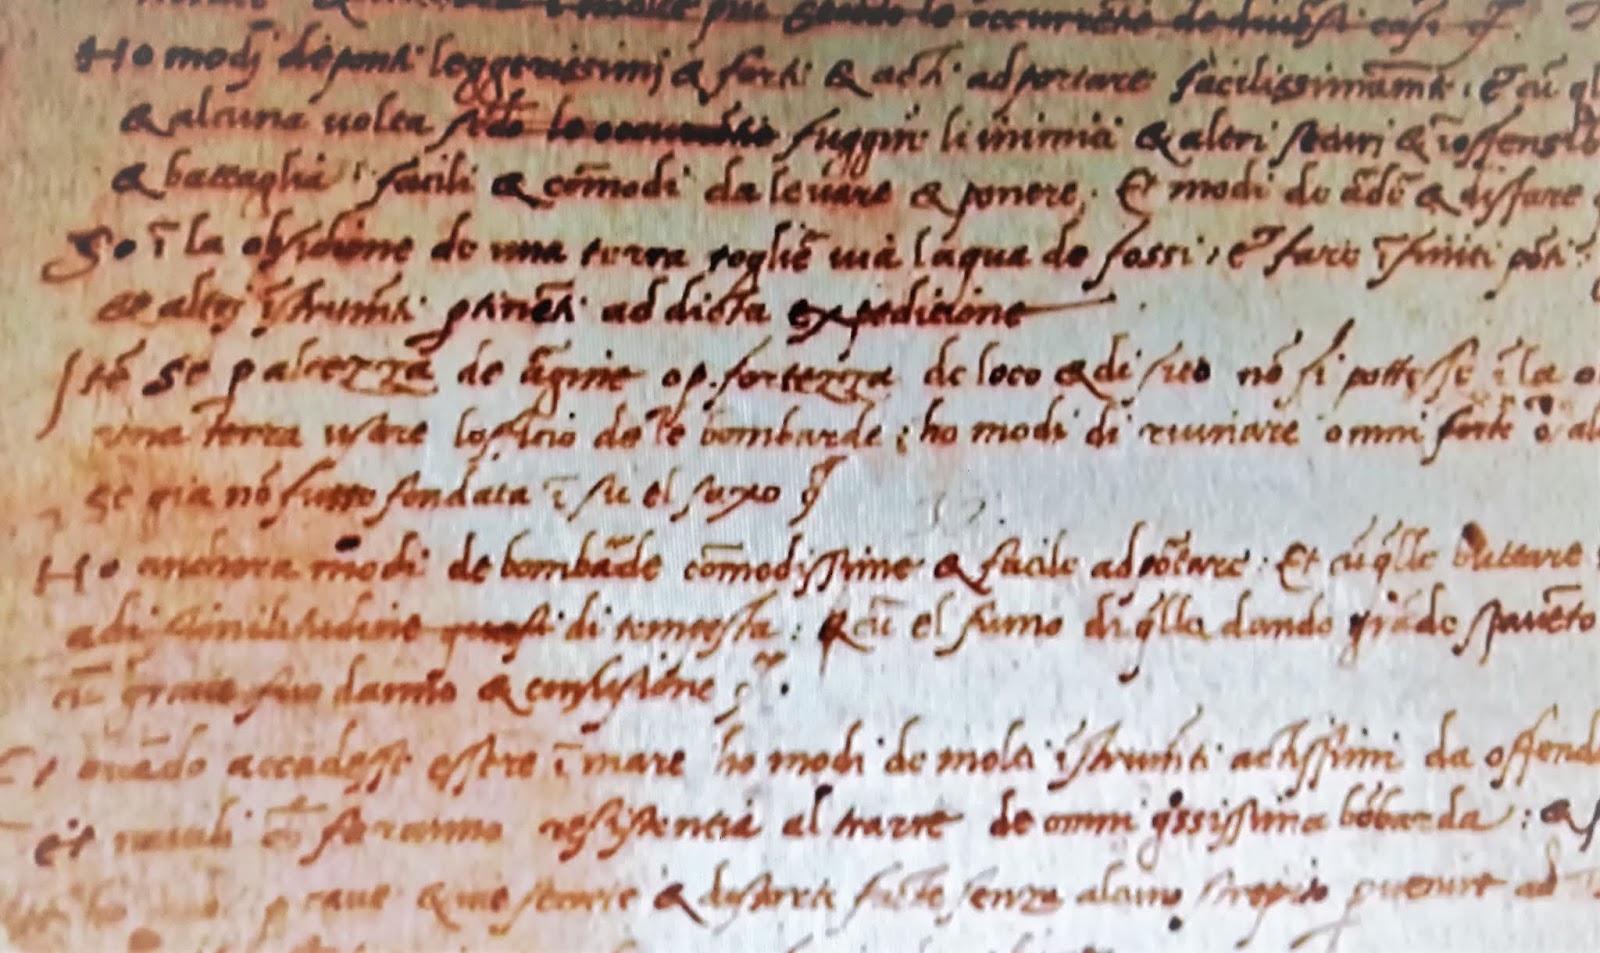 secōdo le occurētie de diuersi casi
Ho modi de ponti leggerissimi & forti & acti ad portare facilissimamēte: Et cū
& alcuna volta secōdo le occurētie fuggire li inimici & altri securi & ī
& battaglia: facili & cōmodi da levare & ponere. Et modi de arde & disfare
So ī la obsidione de una terra toglier via laqua de fossi, & fare īfiniti pōti
& altri īstrumēti ptinēti ad dicta expedicione
Itē se p altezza de argine o p. fortezza de loco & di sito nō si potesse ī la
una terra usare lofficio de le bombarde: ho modi di ruinare omni forte o
se gia nō fusse fondata ī su el saxo
Ho anchora modi de bombarde cōmodissime & facile ad portare: Et cū qlle buttare
adi similitudine quasi di tempesta: & cū el fumo di qlla dando grāde spavēto
cū grave suo danno & confusione
Et quādo accadesse essere ī mare ho modi de molti īstrumēti actissimi da
et navili che faranno resistentia al trarre de omni grossissima bōbarda: &
ho modi p cave & vie secrete & distorte facte senza alcuno strepito p venire ad